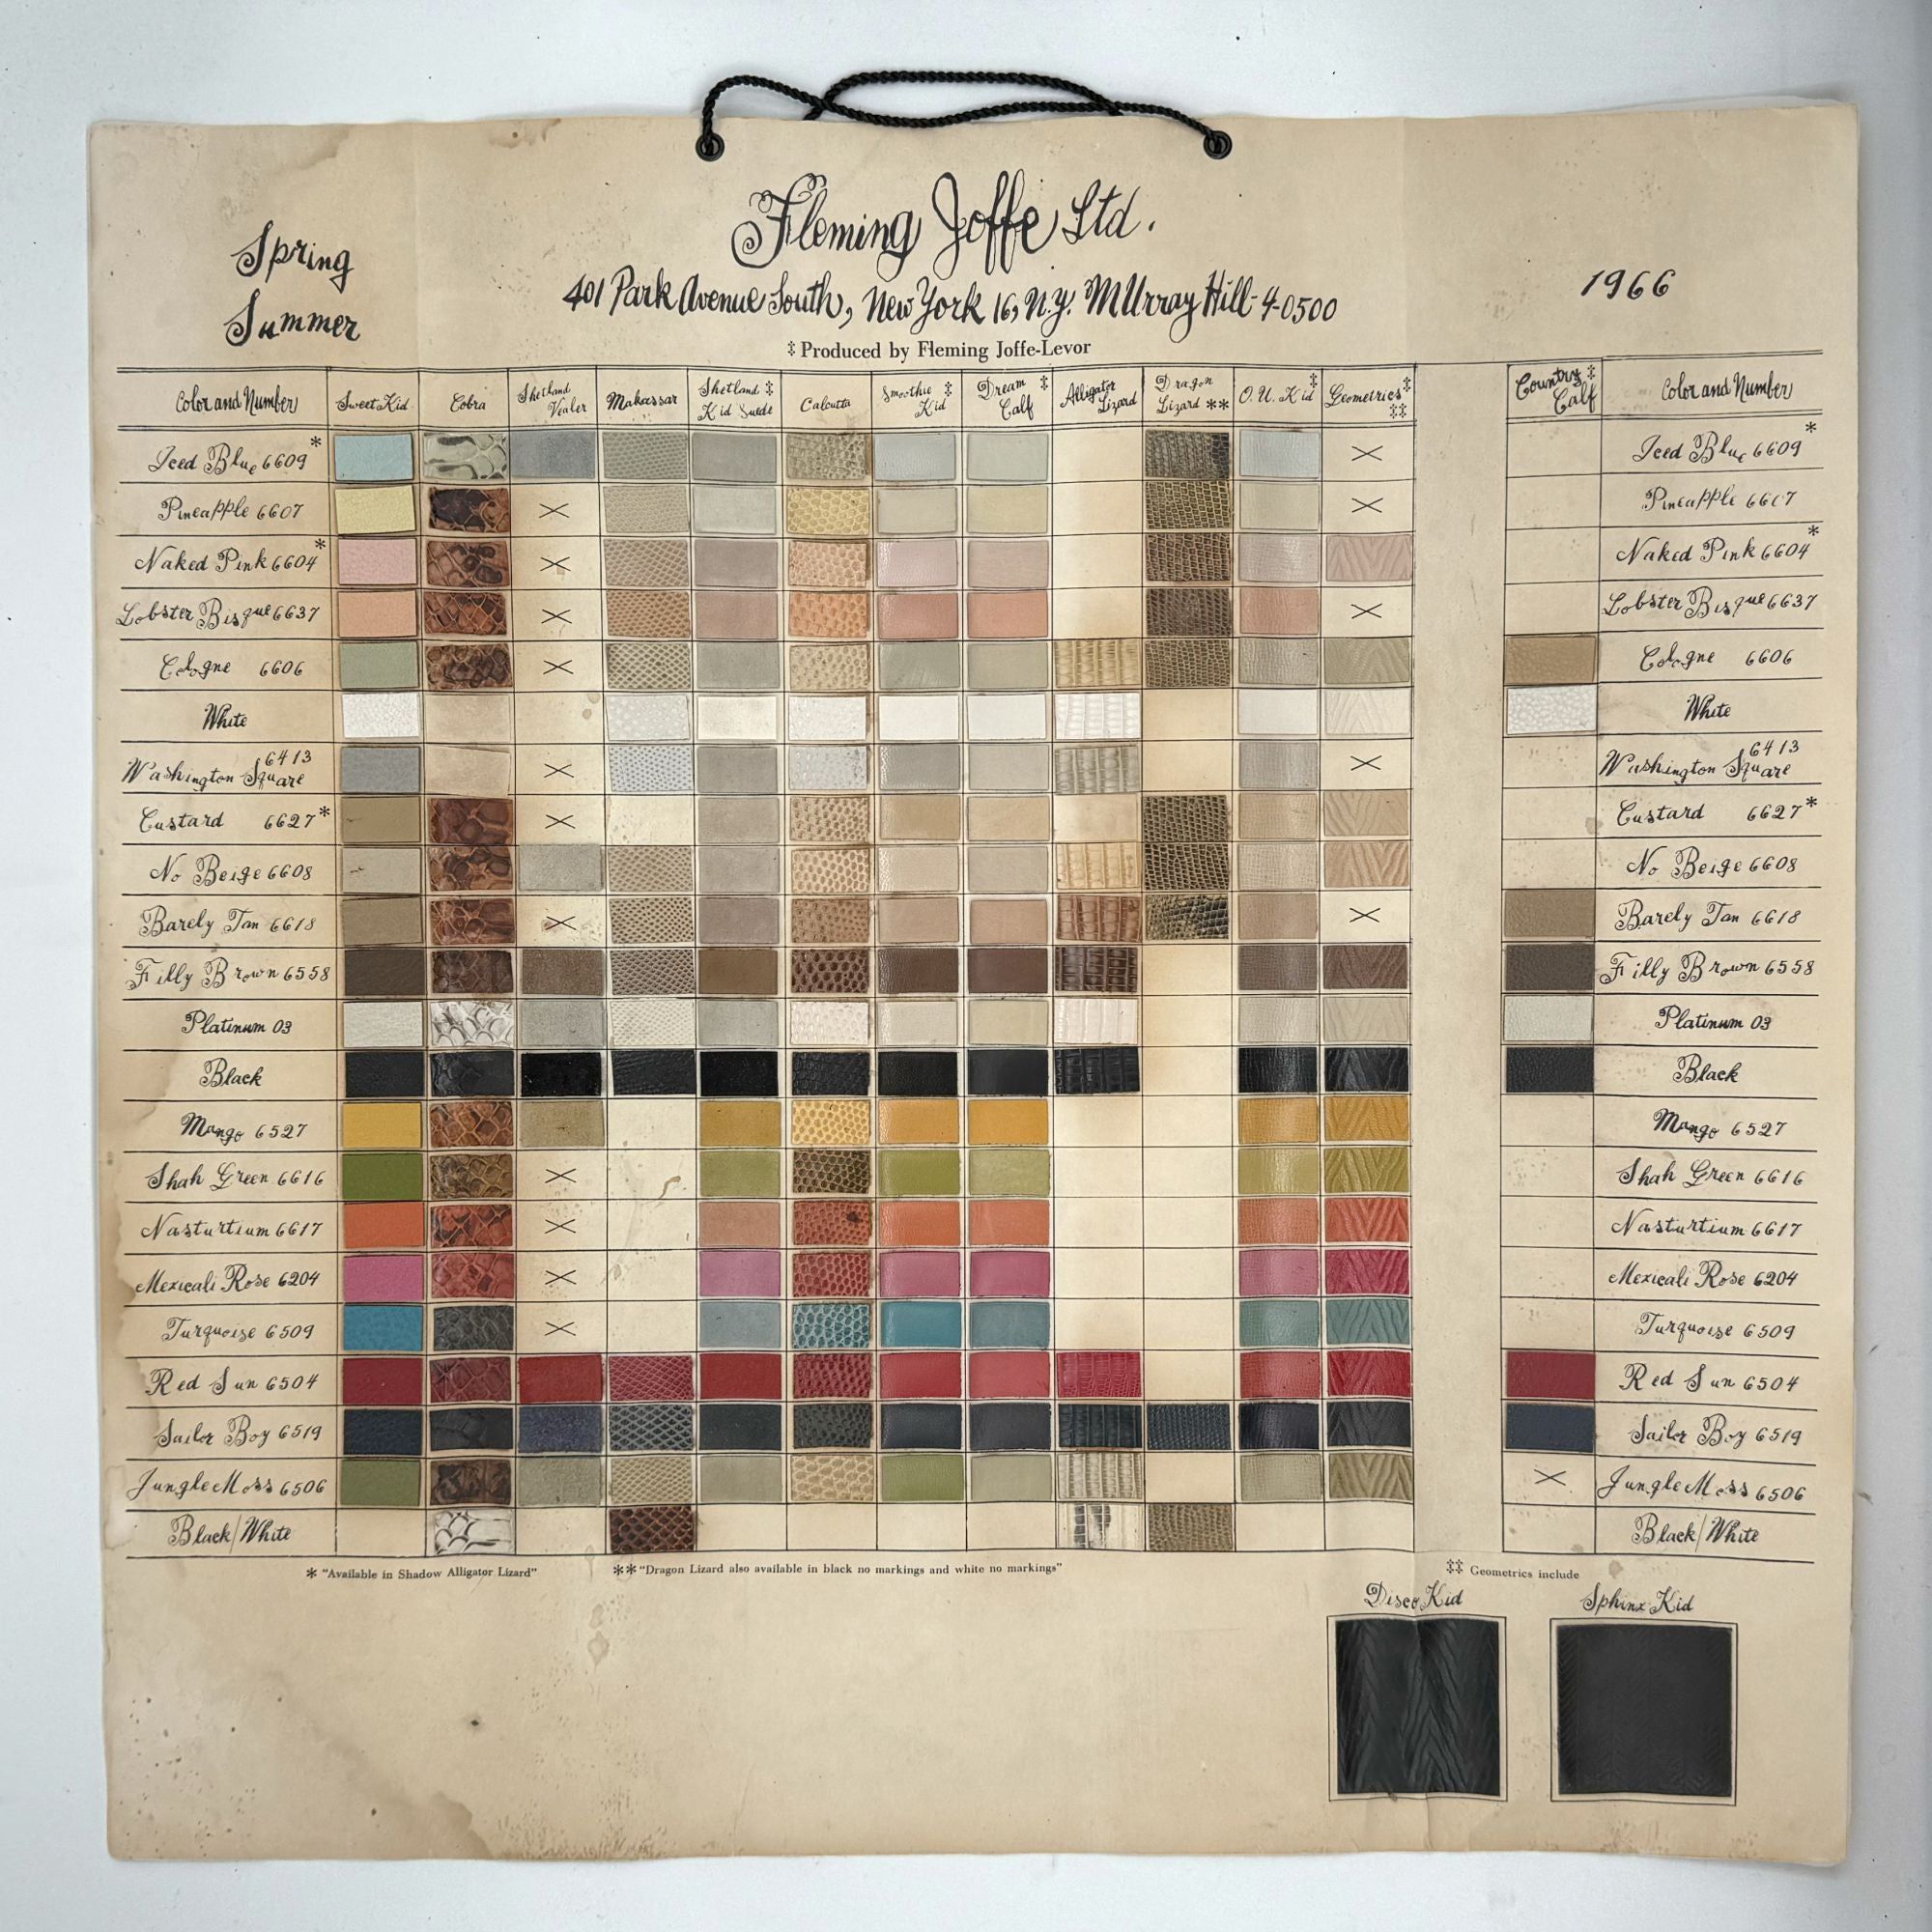 Fleming Joffe Ltd.
Spring
Summer
401 Park Avenue South, New York 16, N.Y. MUrray Hill-4-0500
1966
‡ Produced by Fleming Joffe-Levor
Color and Number Sweet Kid Cobra Shetland Vealer Makassar Shetland Kid Suede ‡ Calcutta Smoothie Kid ‡ Dream Calf ‡ Alligator Lizard Dragon Lizard ** O.U. Kid ‡ Geometrics ‡ ‡‡ Country Calf ‡ Color and Number
Iced Blue 6609* × Iced Blue 6609*
Pineapple 6607 × × Pineapple 6607
Naked Pink 6604* × Naked Pink 6604*
Lobster Bisque 6637 × × Lobster Bisque 6637
Cologne 6606 × Cologne 6606
White White
Washington Square 6413 × × Washington Square 6413
Custard 6627* × Custard 6627*
No Beige 6608 No Beige 6608
Barely Tan 6618 × × Barely Tan 6618
Filly Brown 6558 Filly Brown 6558
Platinum 03 Platinum 03
Black Black
Mango 6527 Mango 6527
Shah Green 6616 × Shah Green 6616
Nasturtium 6617 × Nasturtium 6617
Mexicali Rose 6204 × Mexicali Rose 6204
Turquoise 6509 × Turquoise 6509
Red Sun 6504 Red Sun 6504
Sailor Boy 6519 Sailor Boy 6519
Jungle Moss 6506 × Jungle Moss 6506
Black/White Black/White
* "Available in Shadow Alligator Lizard" ** "Dragon Lizard also available in black no markings and white no markings" ‡‡ Geometrics include
Disco Kid Sphinx Kid